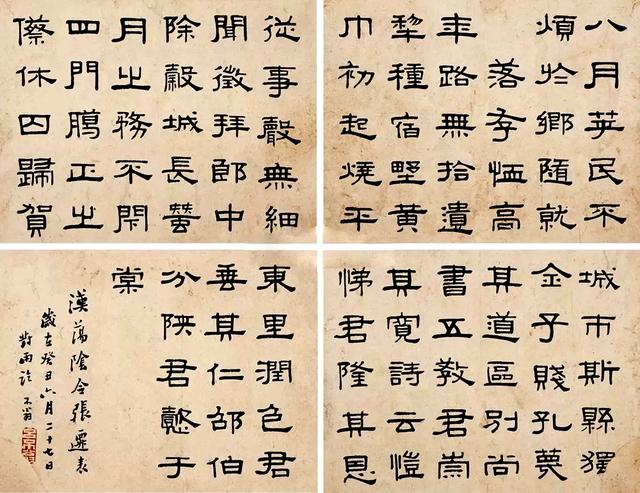 從事轂無細
聞徵拜郎中
除穀城長蠶
月之務不閉
四門臘正之
傺休囚歸賀
八月筭民不
煩於鄉隨就
落存恤高
年路無拾遺
犂種宿野黃
巾初起燒平
城市斯縣獨
全子賤孔蔑
其道區別尚
書五教君崇
其寬詩云愷
悌君隆其恩
東里潤色君
垂其仁邵伯
分陝君懿于
棠
漢蕩陰令張遷表
歲在癸丑六月二十七日
對雨臨 不翁